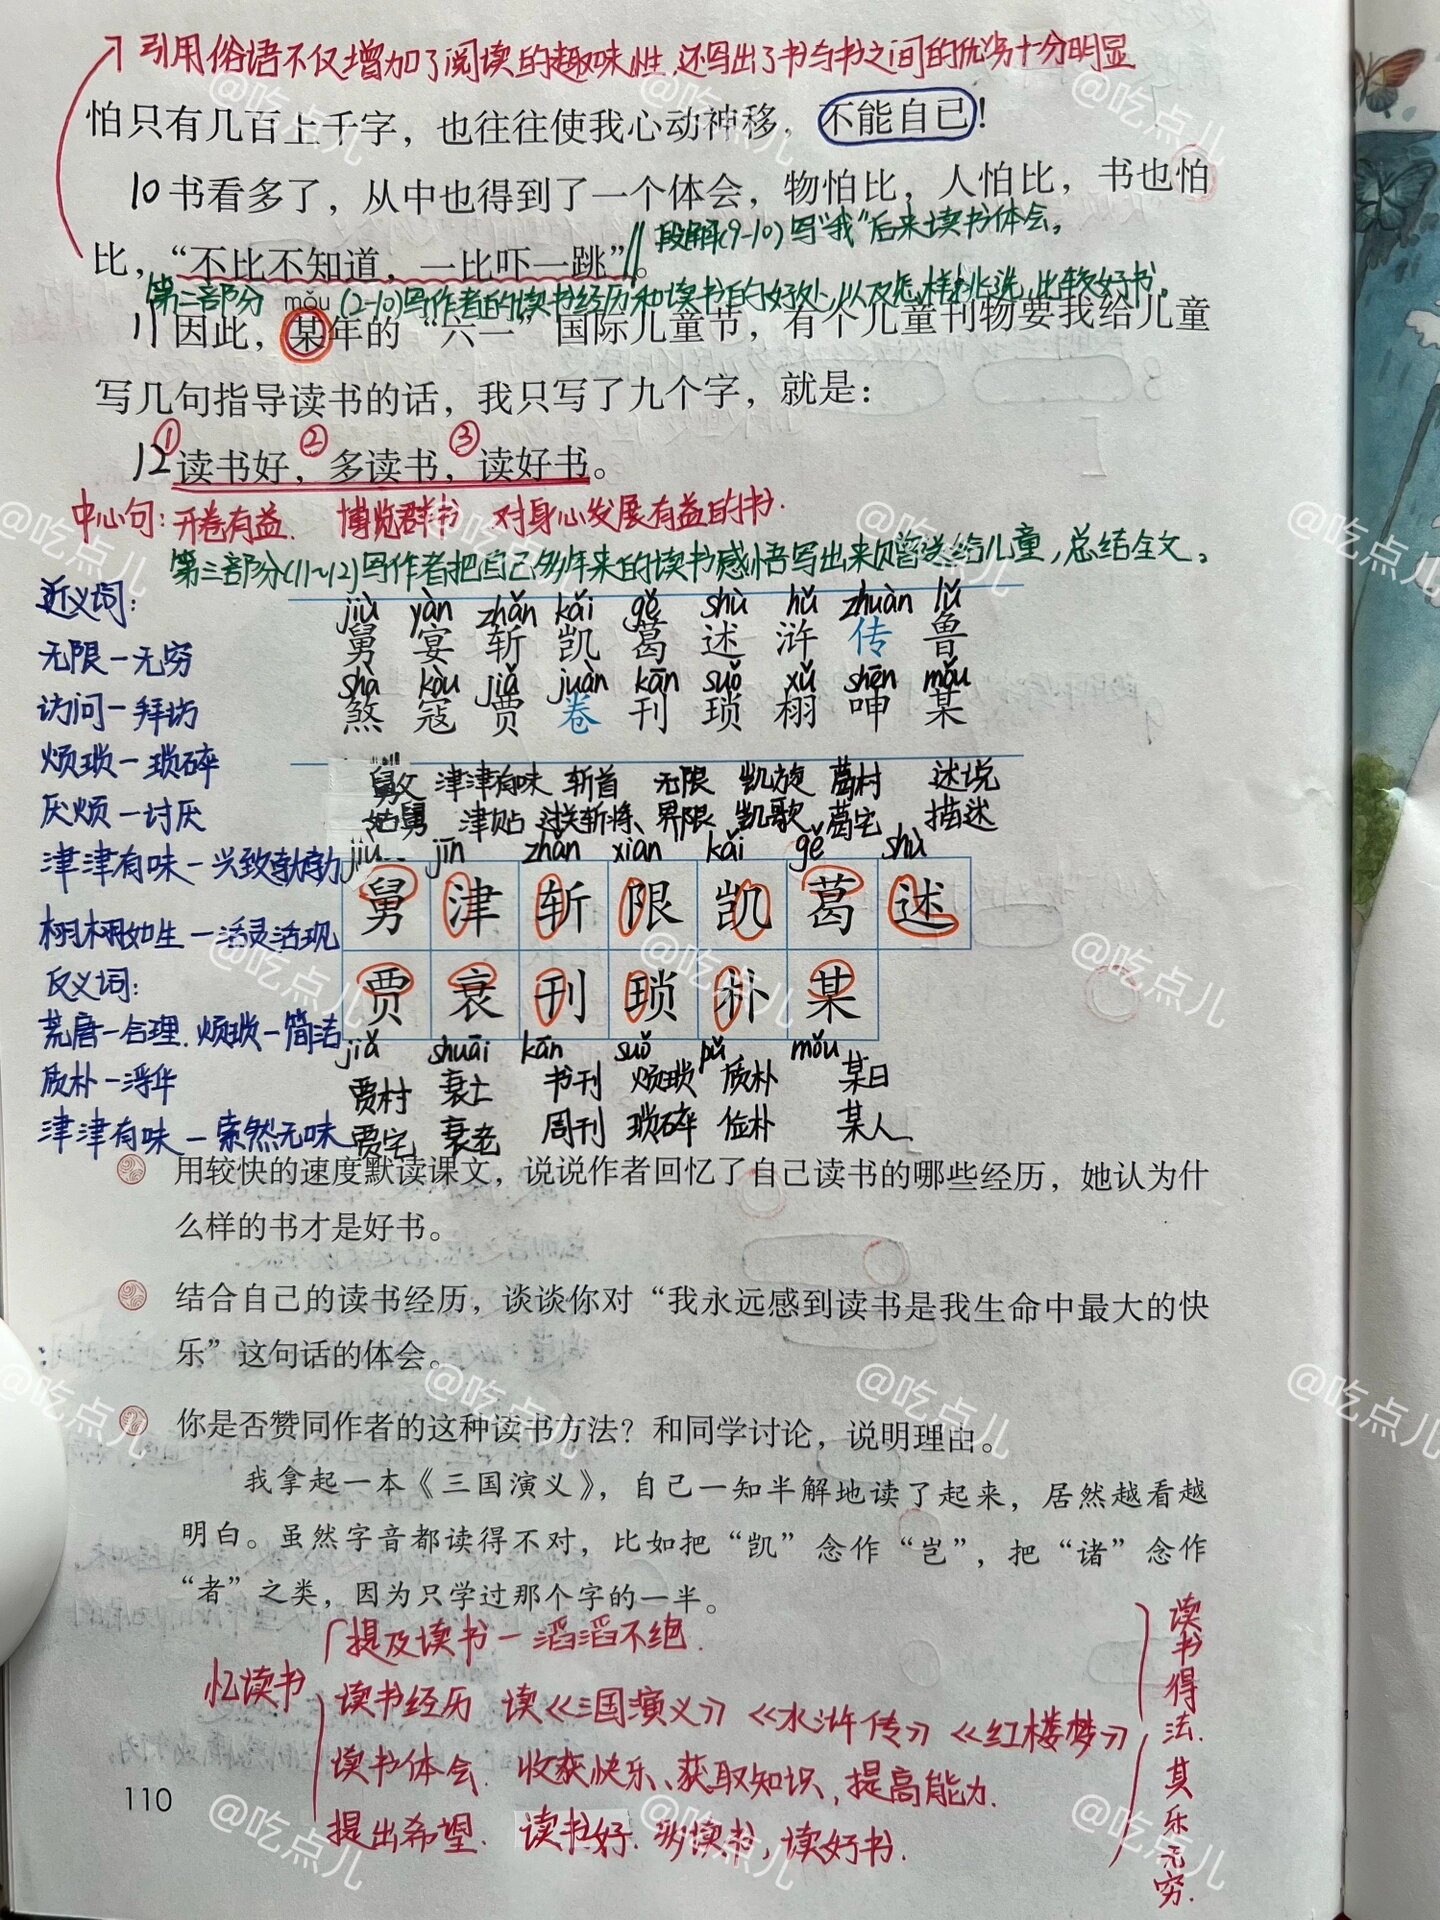 引用俗语不仅增加了阅读的趣味性,还写出了书与书之间的优劣十分明显
怕只有几百上千字，也往往使我心动神移，不能自已！
10书看多了，从中也得到了一个体会，物怕比，人怕比，书也怕
比，“不比不知道，一比吓一跳”。
段解(9-10)写“我”后来读书体会。
第二部分(2-10)写作者的读书经历和读书的好处,以及怎样挑选,比较好书。
mǒu
11因此，某年的“六一”国际儿童节，有个儿童刊物要我给儿童
写几句指导读书的话，我只写了九个字，就是：
① ② ③
12读书好，多读书，读好书。
中心句:开卷有益. 博览群书 对身心发展有益的书.
第三部分(11~12)写作者把自己多年来的读书感悟写出来赠送给儿童,总结全文。
近义词:
无限—无穷
访问—拜访
烦琐—琐碎
厌烦—讨厌
津津有味—兴致勃勃
栩栩如生—活灵活现
反义词:
荒唐—合理. 烦琐—简洁
质朴—浮华
津津有味—索然无味
jiù yàn zhǎn kǎi gě shù hǔ zhuàn lǔ
舅 宴 斩 凯 葛 述 浒 传 鲁
shà kòu jiǎ juàn kān suǒ xǔ shēn mǒu
煞 寇 贾 卷 刊 琐 栩 呻 某
舅父 津津有味 斩首 无限 凯旋 葛村 述说
姑舅 津贴 过关斩将 界限 凯歌 葛宅 描述
jiù jīn zhǎn xiàn kǎi gě shù
舅 津 斩 限 凯 葛 述
贾 衰 刊 琐 朴 某
jiǎ shuāi kān suǒ pǔ mǒu
贾村 衰亡 书刊 烦琐 质朴 某日
贾宅 衰老 周刊 琐碎 俭朴 某人
用较快的速度默读课文，说说作者回忆了自己读书的哪些经历，她认为什
么样的书才是好书。
结合自己的读书经历，谈谈你对“我永远感到读书是我生命中最大的快
乐”这句话的体会。
你是否赞同作者的这种读书方法？和同学讨论，说明理由。
我拿起一本《三国演义》，自己一知半解地读了起来，居然越看越
明白。虽然字音都读得不对，比如把“凯”念作“岂”，把“诸”念作
“者”之类，因为只学过那个字的一半。
忆读书
提及读书—滔滔不绝.
读书经历 读《三国演义》《水浒传》《红楼梦》
读书体会. 收获快乐、获取知识,提高能力.
提出希望. 读书好.多读书,读好书.
读书得法.其乐无穷.
110
@吃点儿